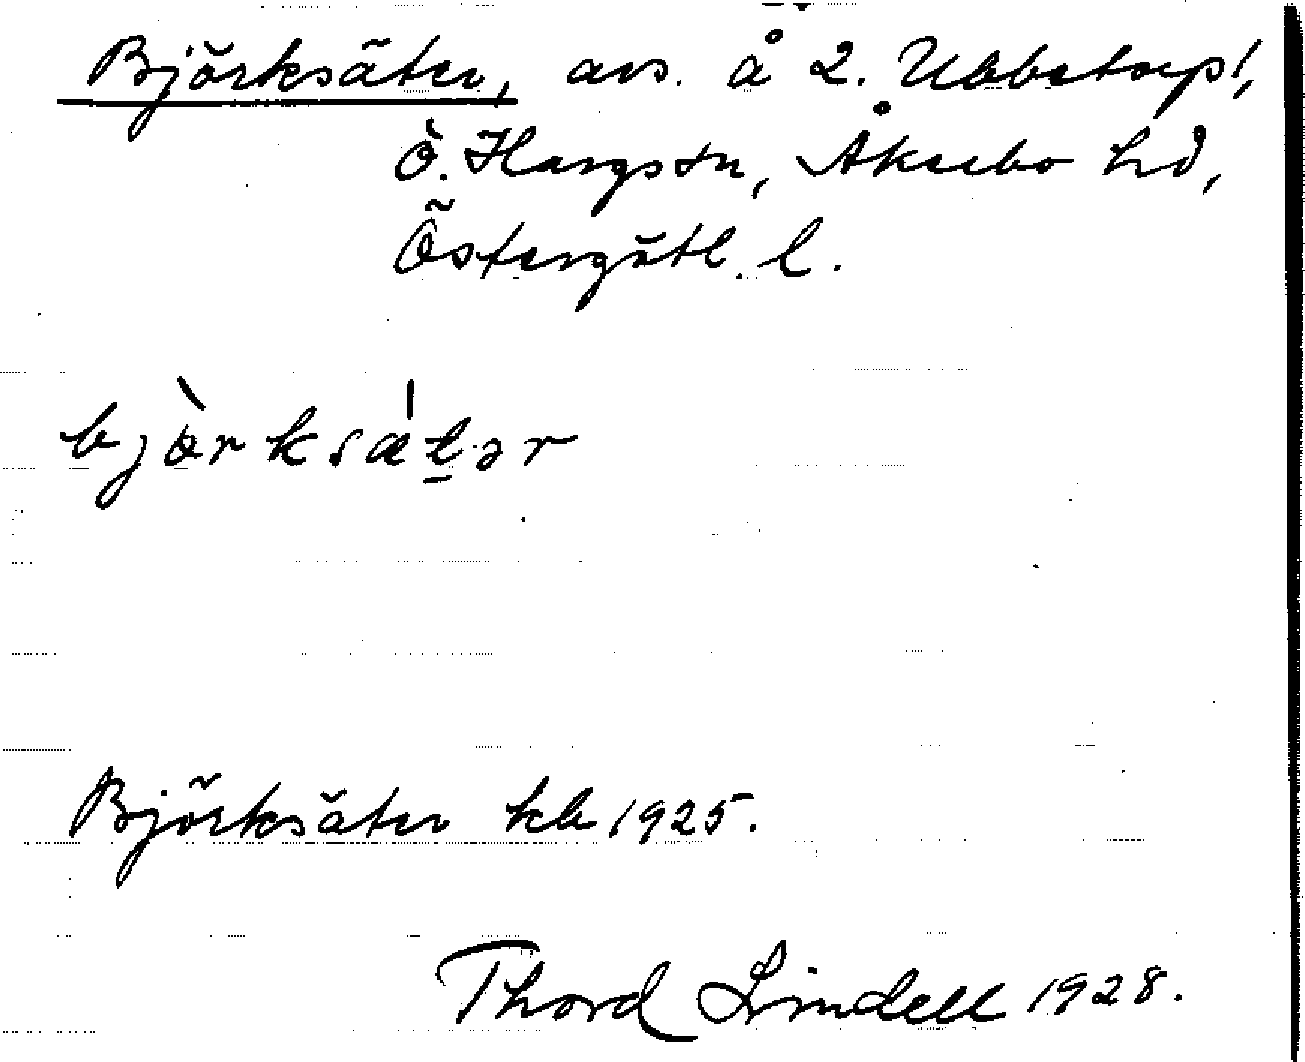 Björksäter, avs. å 2. Ubbetorp,
Ö. Hargs sn, Åkerbo hd,
Östergötl. l.
bjö̀rksätər
Björksäter kb 1925.
Thord Lindell 1928.